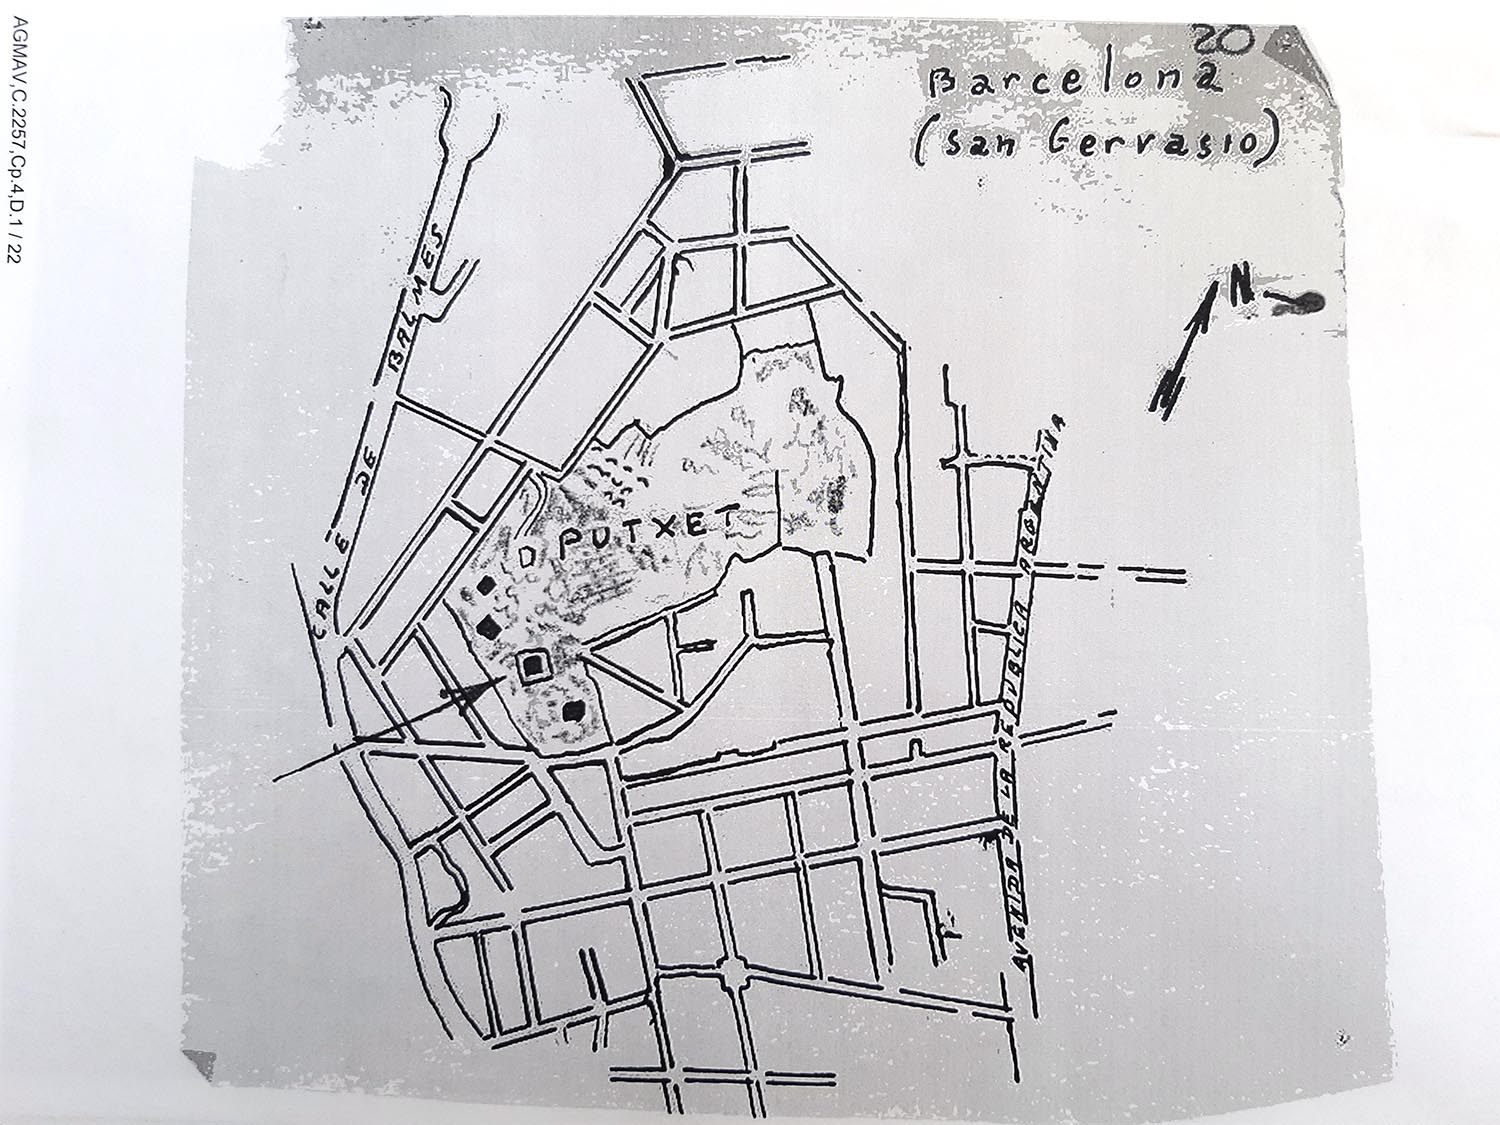 AGMAV,C.2257,Cp.4,D.1 / 22
20
Barcelona
(san Gervasio)
N
CALLE DE BALMES
D PUTXET
AVENIDA DE LA REPUBLICA ARGENTINA